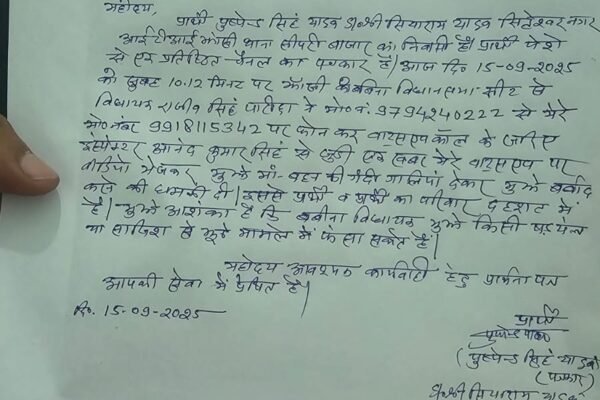 महोदय,
प्रार्थी पुष्पेन्द्र सिंह यादव S/o श्री सियाराम यादव सिद्धेश्वर नगर
आईटीआई झाँसी थाना सीपरी बाजार का निवासी है। प्रार्थी पेशे
से एक प्रतिष्ठित चैनल का पत्रकार है। आज दि० 15-09-2025
को सुबह 10.12 मिनट पर झाँसी की बबीना विधानसभा सीट से
विधायक राजीव सिंह पारीछा ने मो०नं. 9794240222 से मेरे
मो०नंबर 9918115342 पर फोन कर वाट्सएप कॉल के जरिए
इंस्पेक्टर आनंद कुमार सिंह से जुड़ी एक खबर मेरे वाट्सएप पर
वीडियो भेजकर मुझे मां-बहन की गंदी गालियां देकर मुझे बर्बाद
करने की धमकी दी। इससे प्रार्थी व प्रार्थी का परिवार दहशत में
है। मुझे आशंका है कि बबीना विधायक मुझे किसी षड्यंत्र
या साजिश से झूठे मामले में फंसा सकते हैं।
महोदय आवश्यक कार्यवाही हेतु प्रार्थना पत्र
आपकी सेवा में प्रेषित है।
दि०. 15-09-2025
प्रार्थी
(पुष्पेन्द्र सिंह यादव)
(पत्रकार)
S/o श्री सियाराम यादव